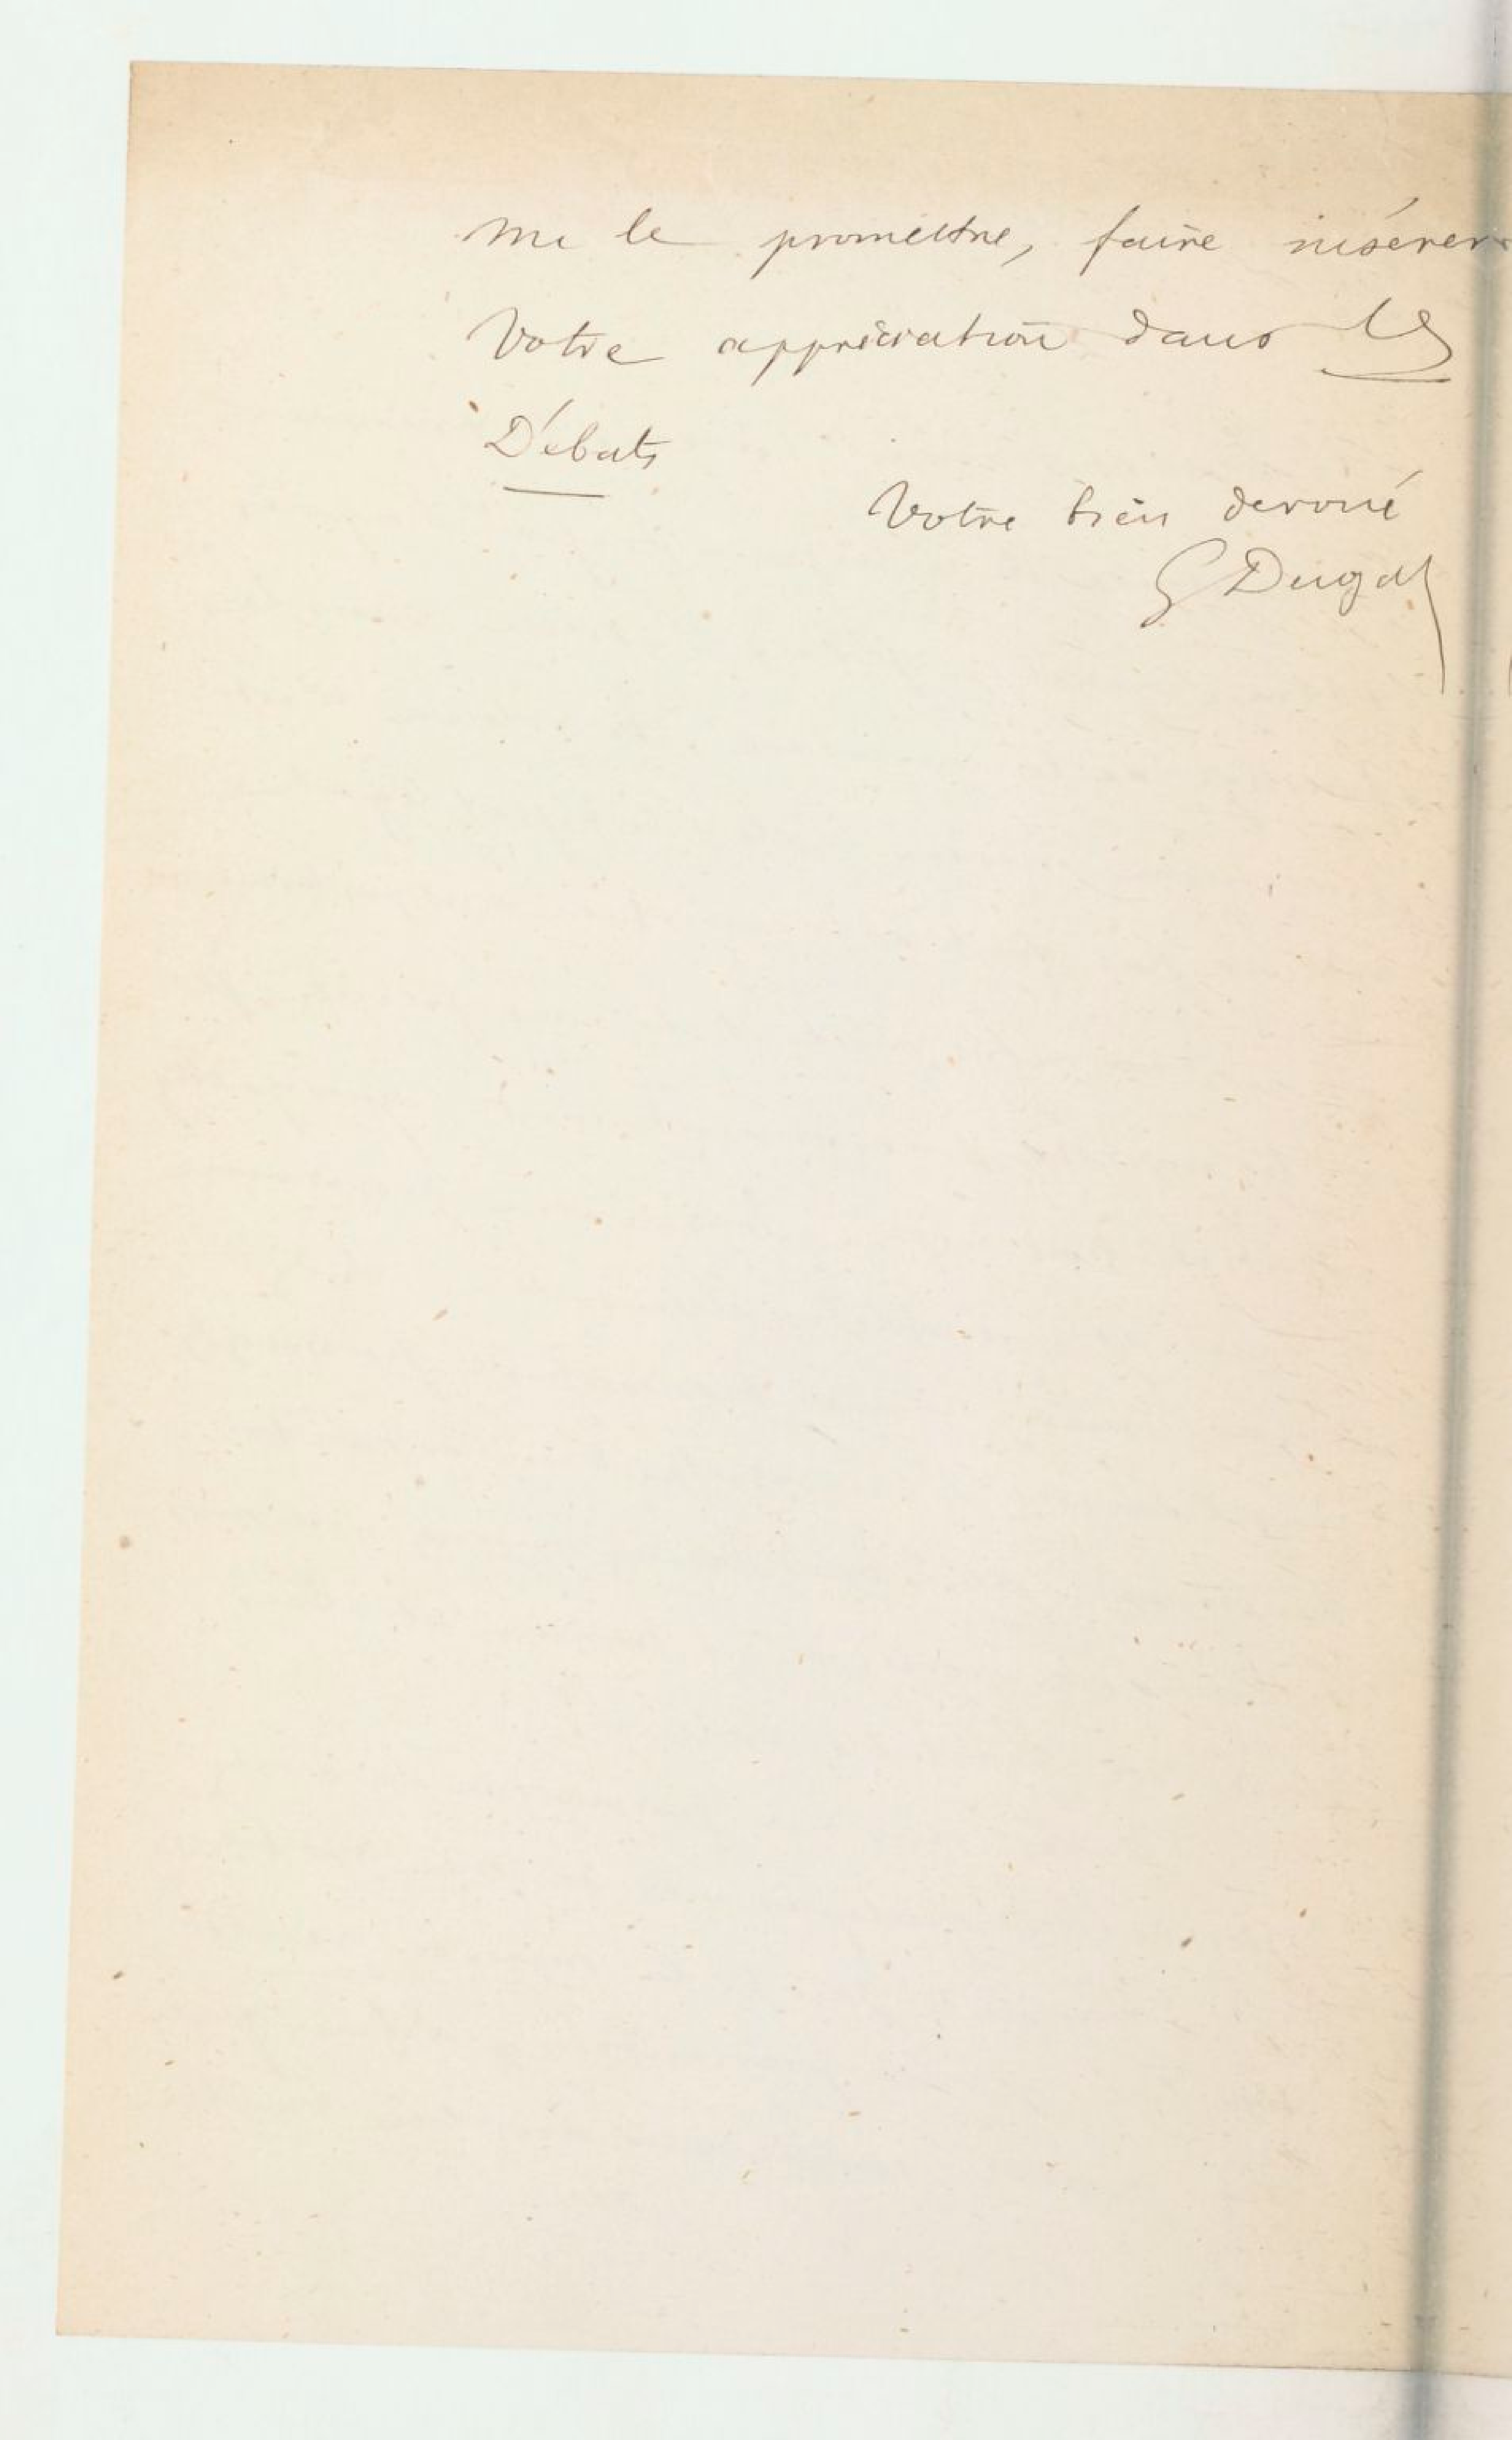 me le promettre, faire insérer
votre appréciation dans les
Débats
Votre bien dévoué
G Dugat